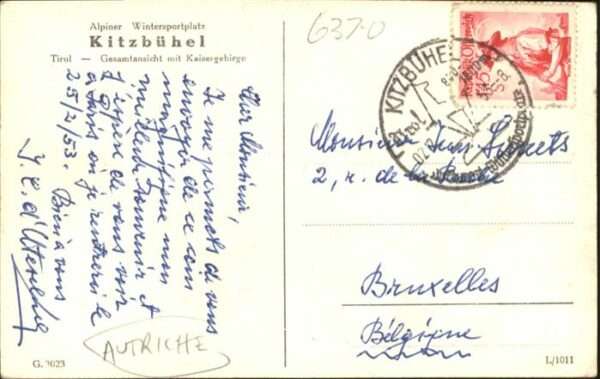 Alpiner Wintersportplatz
Kitzbühel
Tirol — Gesamtansicht mit Kaisergebirge
637-0
Cher Monsieur,
Je me permets de vous
envoyer de ce coin
magnifique mon
meilleur souvenir et
j'espère de vous voir
à Paris où je rentrerai le
25/2/53. Bien à vous
J. C.
AUTRICHE
G. 3023
KITZBÜHEL
Tirol
Monsieur
2, r. de la
Bruxelles
Belgique
L/1011